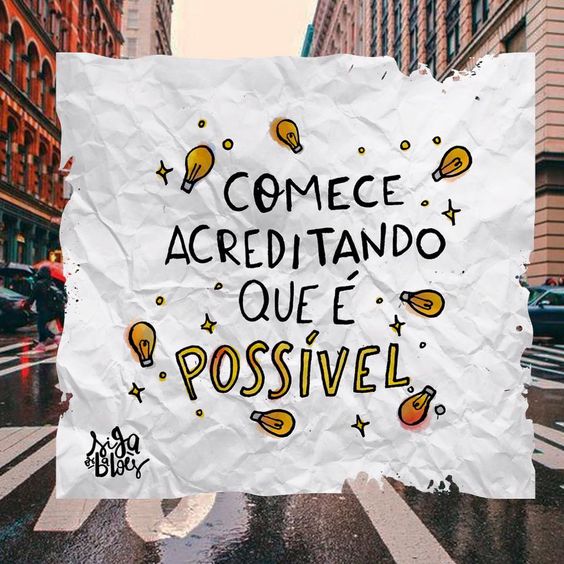 COMECE
ACREDITANDO
QUE É
POSSÍVEL
siga
os balões